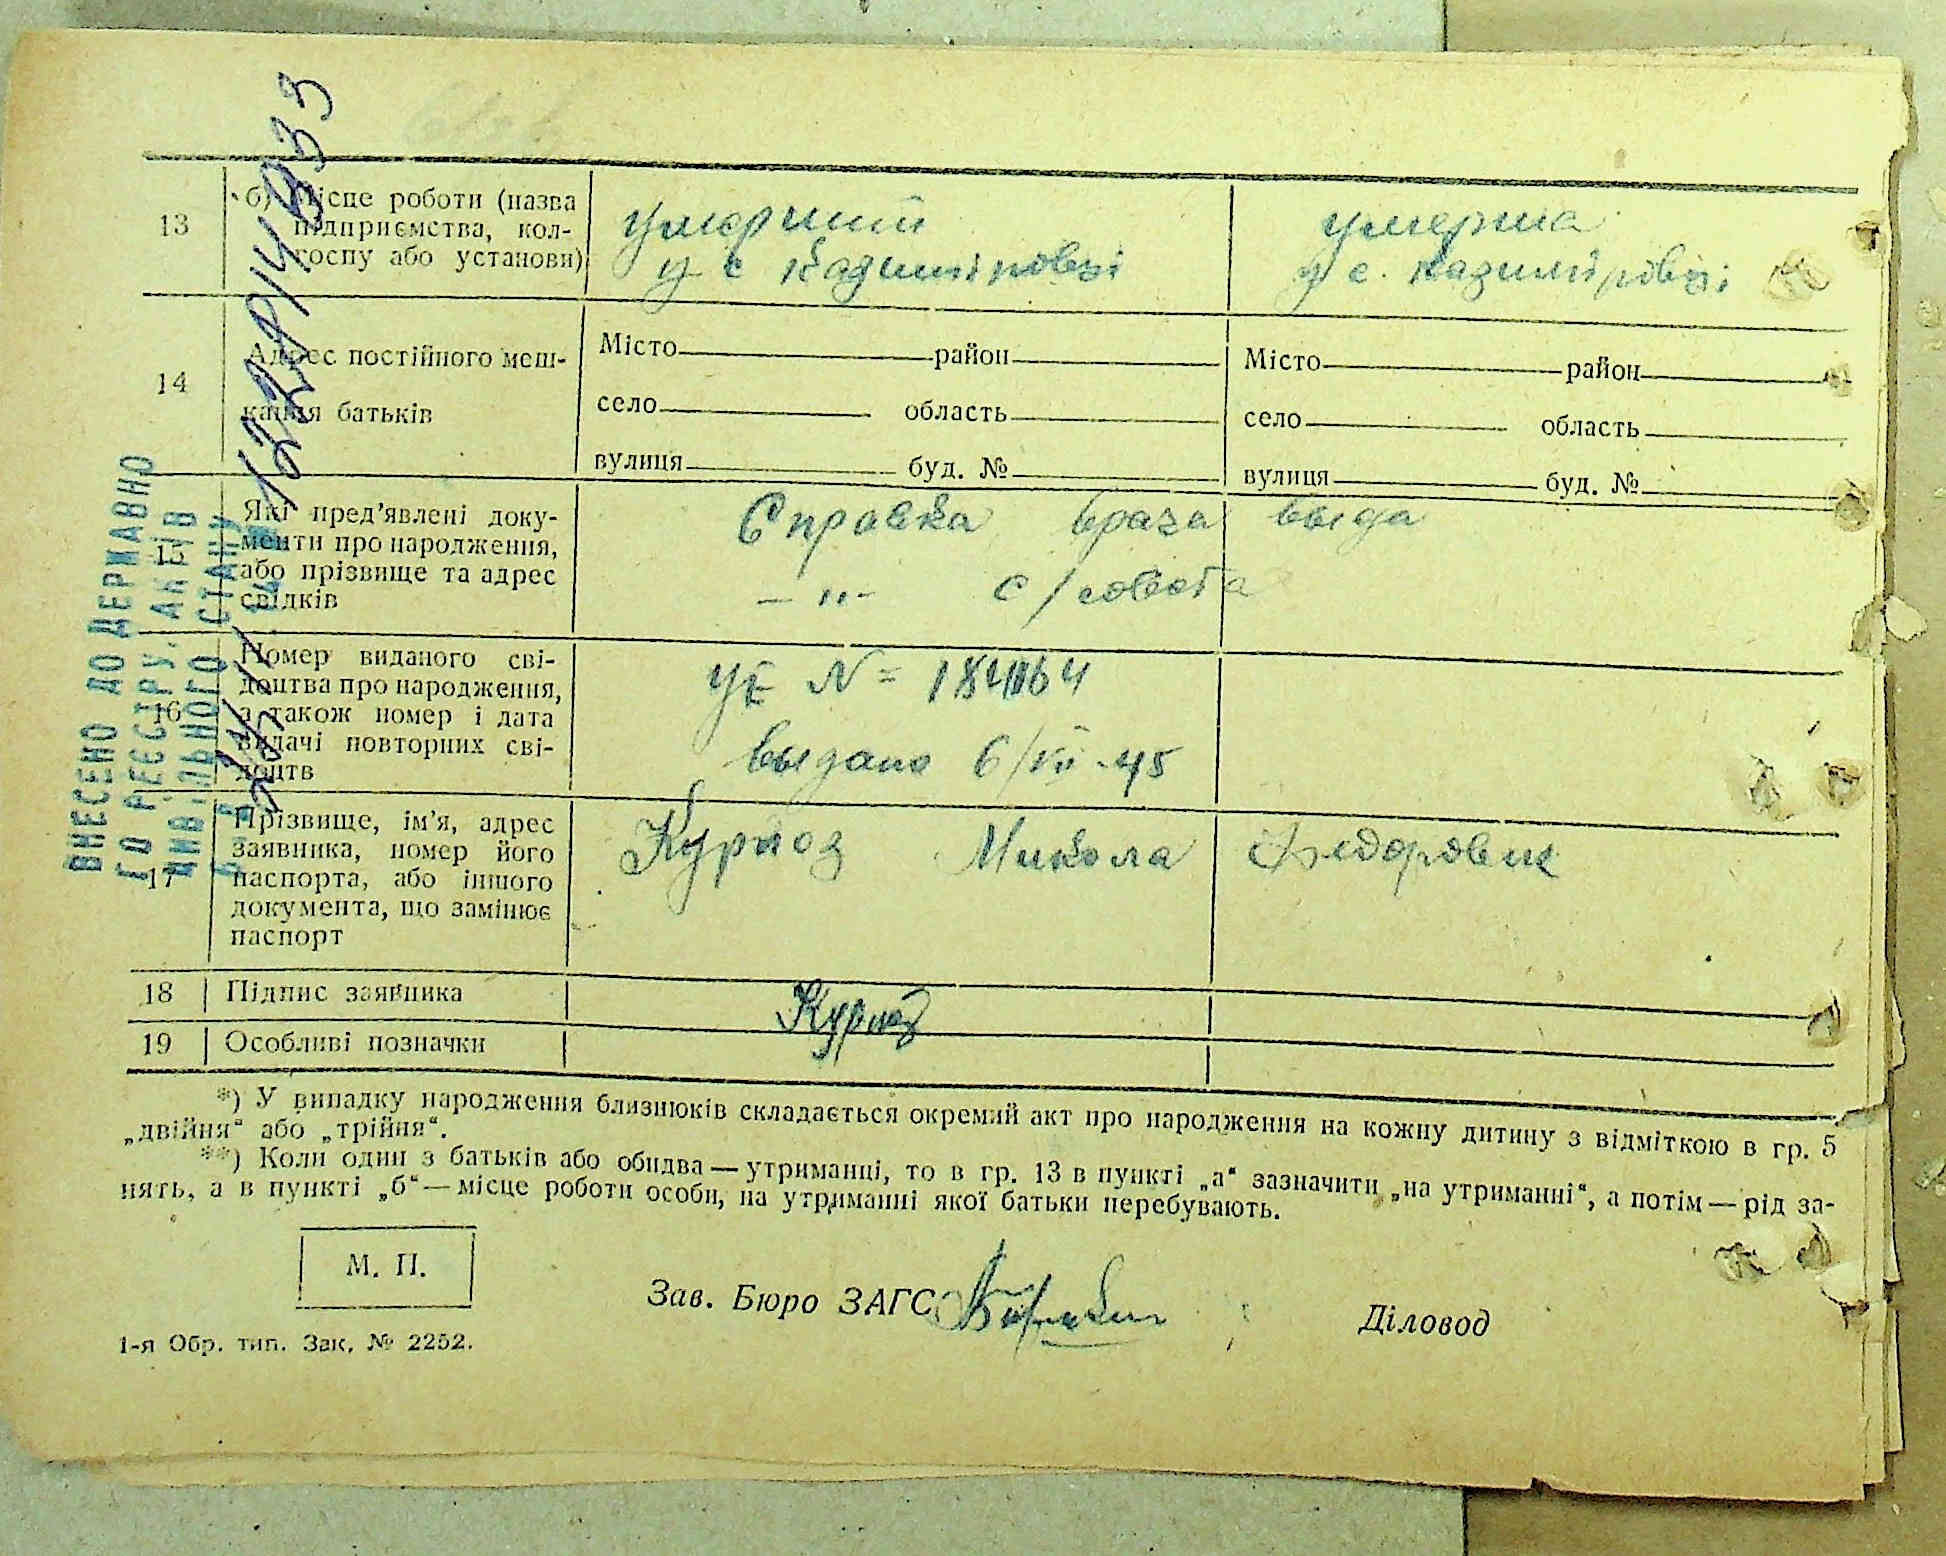 13
б) Місце роботи (назва
підприємства, кол-
госпу або установи)
умерший
у с Кадиміровці
умерша
у с. Казиміровці
14
Адрес постійного меш-
кання батьків
Місто район
село область
вулиця буд. №
Місто район
село область
вулиця буд. №
15
Які пред’явлені доку-
менти про народження,
або прізвище та адрес
свідків
Справка врача выда
— „ - с/совета
16
Номер виданого сві-
доцтва про народження,
а також номер і дата
видачі повторних сві-
доцтв
УЕ N =
выдано 6/VII-45
17
Прізвище, ім’я, адрес
заявника, номер його
паспорта, або іншого
документа, що замінює
паспорт
Микола Федорович
18
Підпис заявника
19
Особливі позначки
*) У випадку народження близнюків складається окремий акт про народження на кожну дитину з відміткою в гр. 5
„двійня“ або „трійня“.
**) Коли один з батьків або обидва — утриманці, то в гр. 13 в пункті „а“ зазначити „на утриманні“, а потім — рід за-
нять, а в пункті „б“ — місце роботи особи, на утриманні якої батьки перебувають.
М. П.
Зав. Бюро ЗАГС
Діловод
1-я Обр. тип. Зак. № 2252.
ВНЕСЕНО ДО ДЕРЖАВНО
ГО РЕЄСТРУ АКТІВ
ЦИВІЛЬНОГО СТАНУ